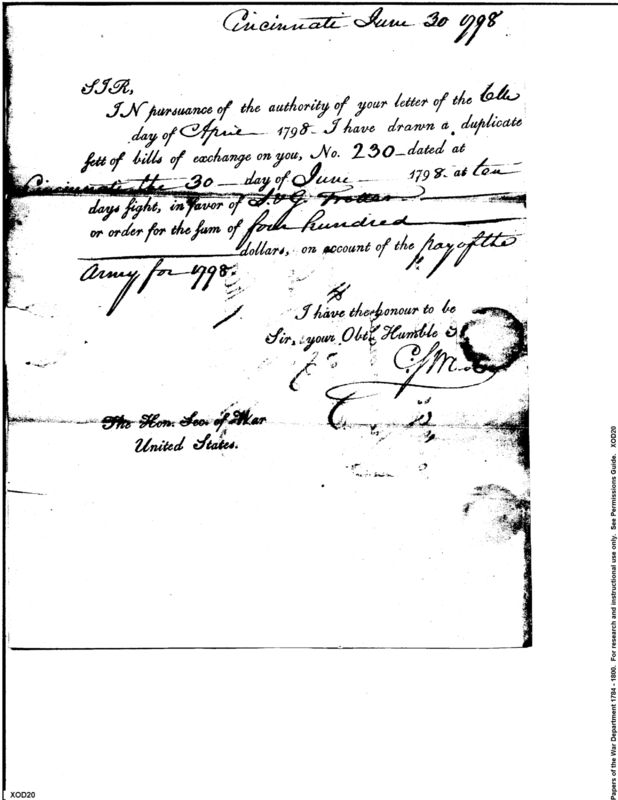 Cincinnati June 30 1798
SIR,
IN pursuance of the authority of your letter of the
day of April 1798 - I have drawn a duplicate
sett of bills of exchange on you, No. 230 - dated at
Cincinnati the 30 day of June 1798. at ten
days sight, in favor of S. & G. Trotter
or order for the sum of four hundred
dollars, on account of the pay of the
Army for 1798.
I have the honour to be
Sir, your Obt. Humble S
The Hon. Sec. of War
United States.
Papers of the War Department 1784 - 1800. For research and instructional use only. See Permissions Guide. XOD20
XOD20